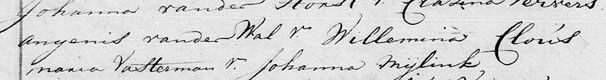 Johanna vander Horst v. Clasina Ververs
angenis vander Wal v. Willemina Cloŭs
maria Vasterman v. Johanna Mijlink